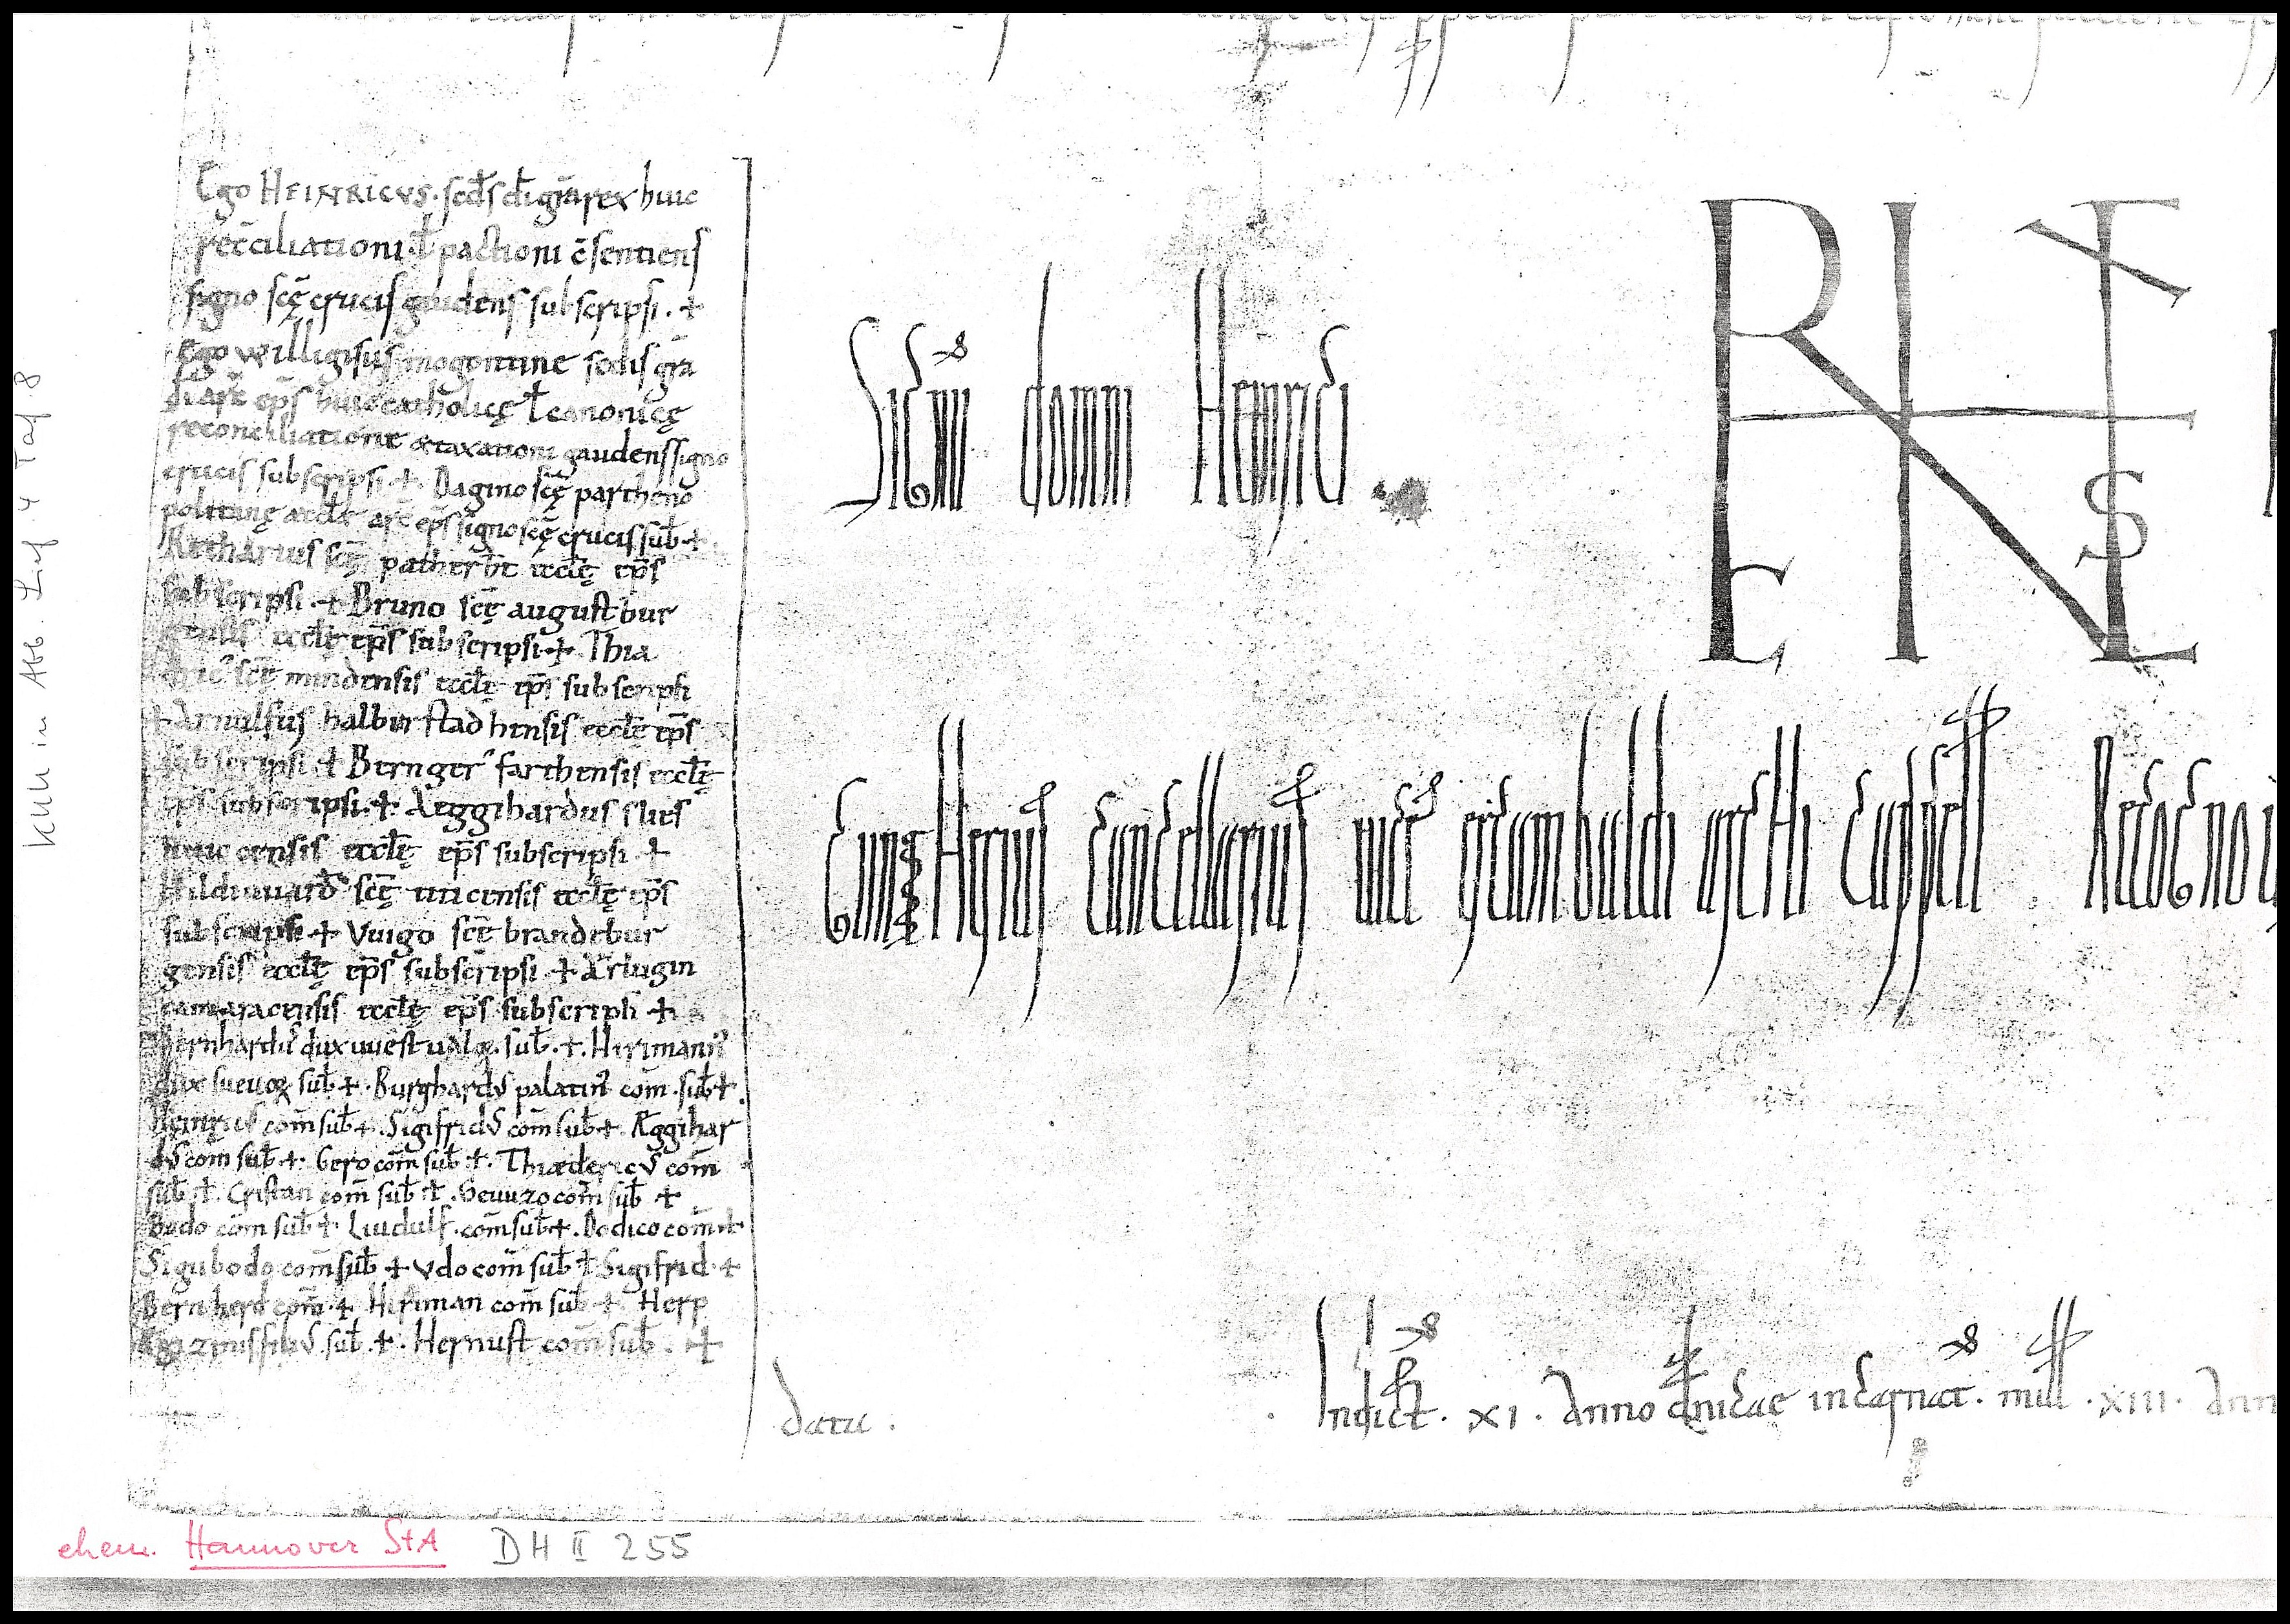 Ego HEINRICVS. scds di gra rex huic
recciliationi t pactioni c sentiens
signo sce crucis gaudens subscripsi . +
Ego willigisus mogontine sedis gra
di arc eps huic catholice t canonice
reconciliatione &taxationi gaudens signo
crucis subscripsi + Dagino sce partheno
politane aecle arc eps signo sce crucis sub +
Retharius sce patherbr aecle eps
subscripsi + Bruno sce august bur
gensis aecle eps subscripsi + Thia
sce mindensis aecle eps subscripsi
+ Arnulfus halberstadhensis aecle eps
subscripsi + Bernger farthensis aecle
eps subscripsi + Aeggihardus slies
censis aecle eps subscripsi +
Hildiuuard sce ticensis aecle eps
subscripsi + Vuigo sce brandebur
gensis aecle eps subscripsi + Aerlugin
camaracensis aecle eps subscripsi +
Bernhard dux uuestualoꝝ sub + Herimann
dux sueuoꝝ sub + Burghard palatin com sub +
Heinric com sub + Sigifrid com sub + Aeggihar
d com sub + Gero com sub + Thiaederic com
sub + Cristan com sub + Geuuzo com sub +
Bodo com sub + Liudulf com sub + Dodico com +
Sigibodo com sub + Vdo com sub + Sigifrid +
Bernherd com + Heriman com sub + Herp
sub + Hernust com sub +
Signu domni Heinrici
R E N I T S
Guntherius cancellarius uice ercambaldi archi cappell Recogno
data . Indict . XI . Anno dnicae incarnat . mill . XIII . Ann
KUU in Abb. Lief 4 Taf 8
ehem. Hannover StA DH II 255